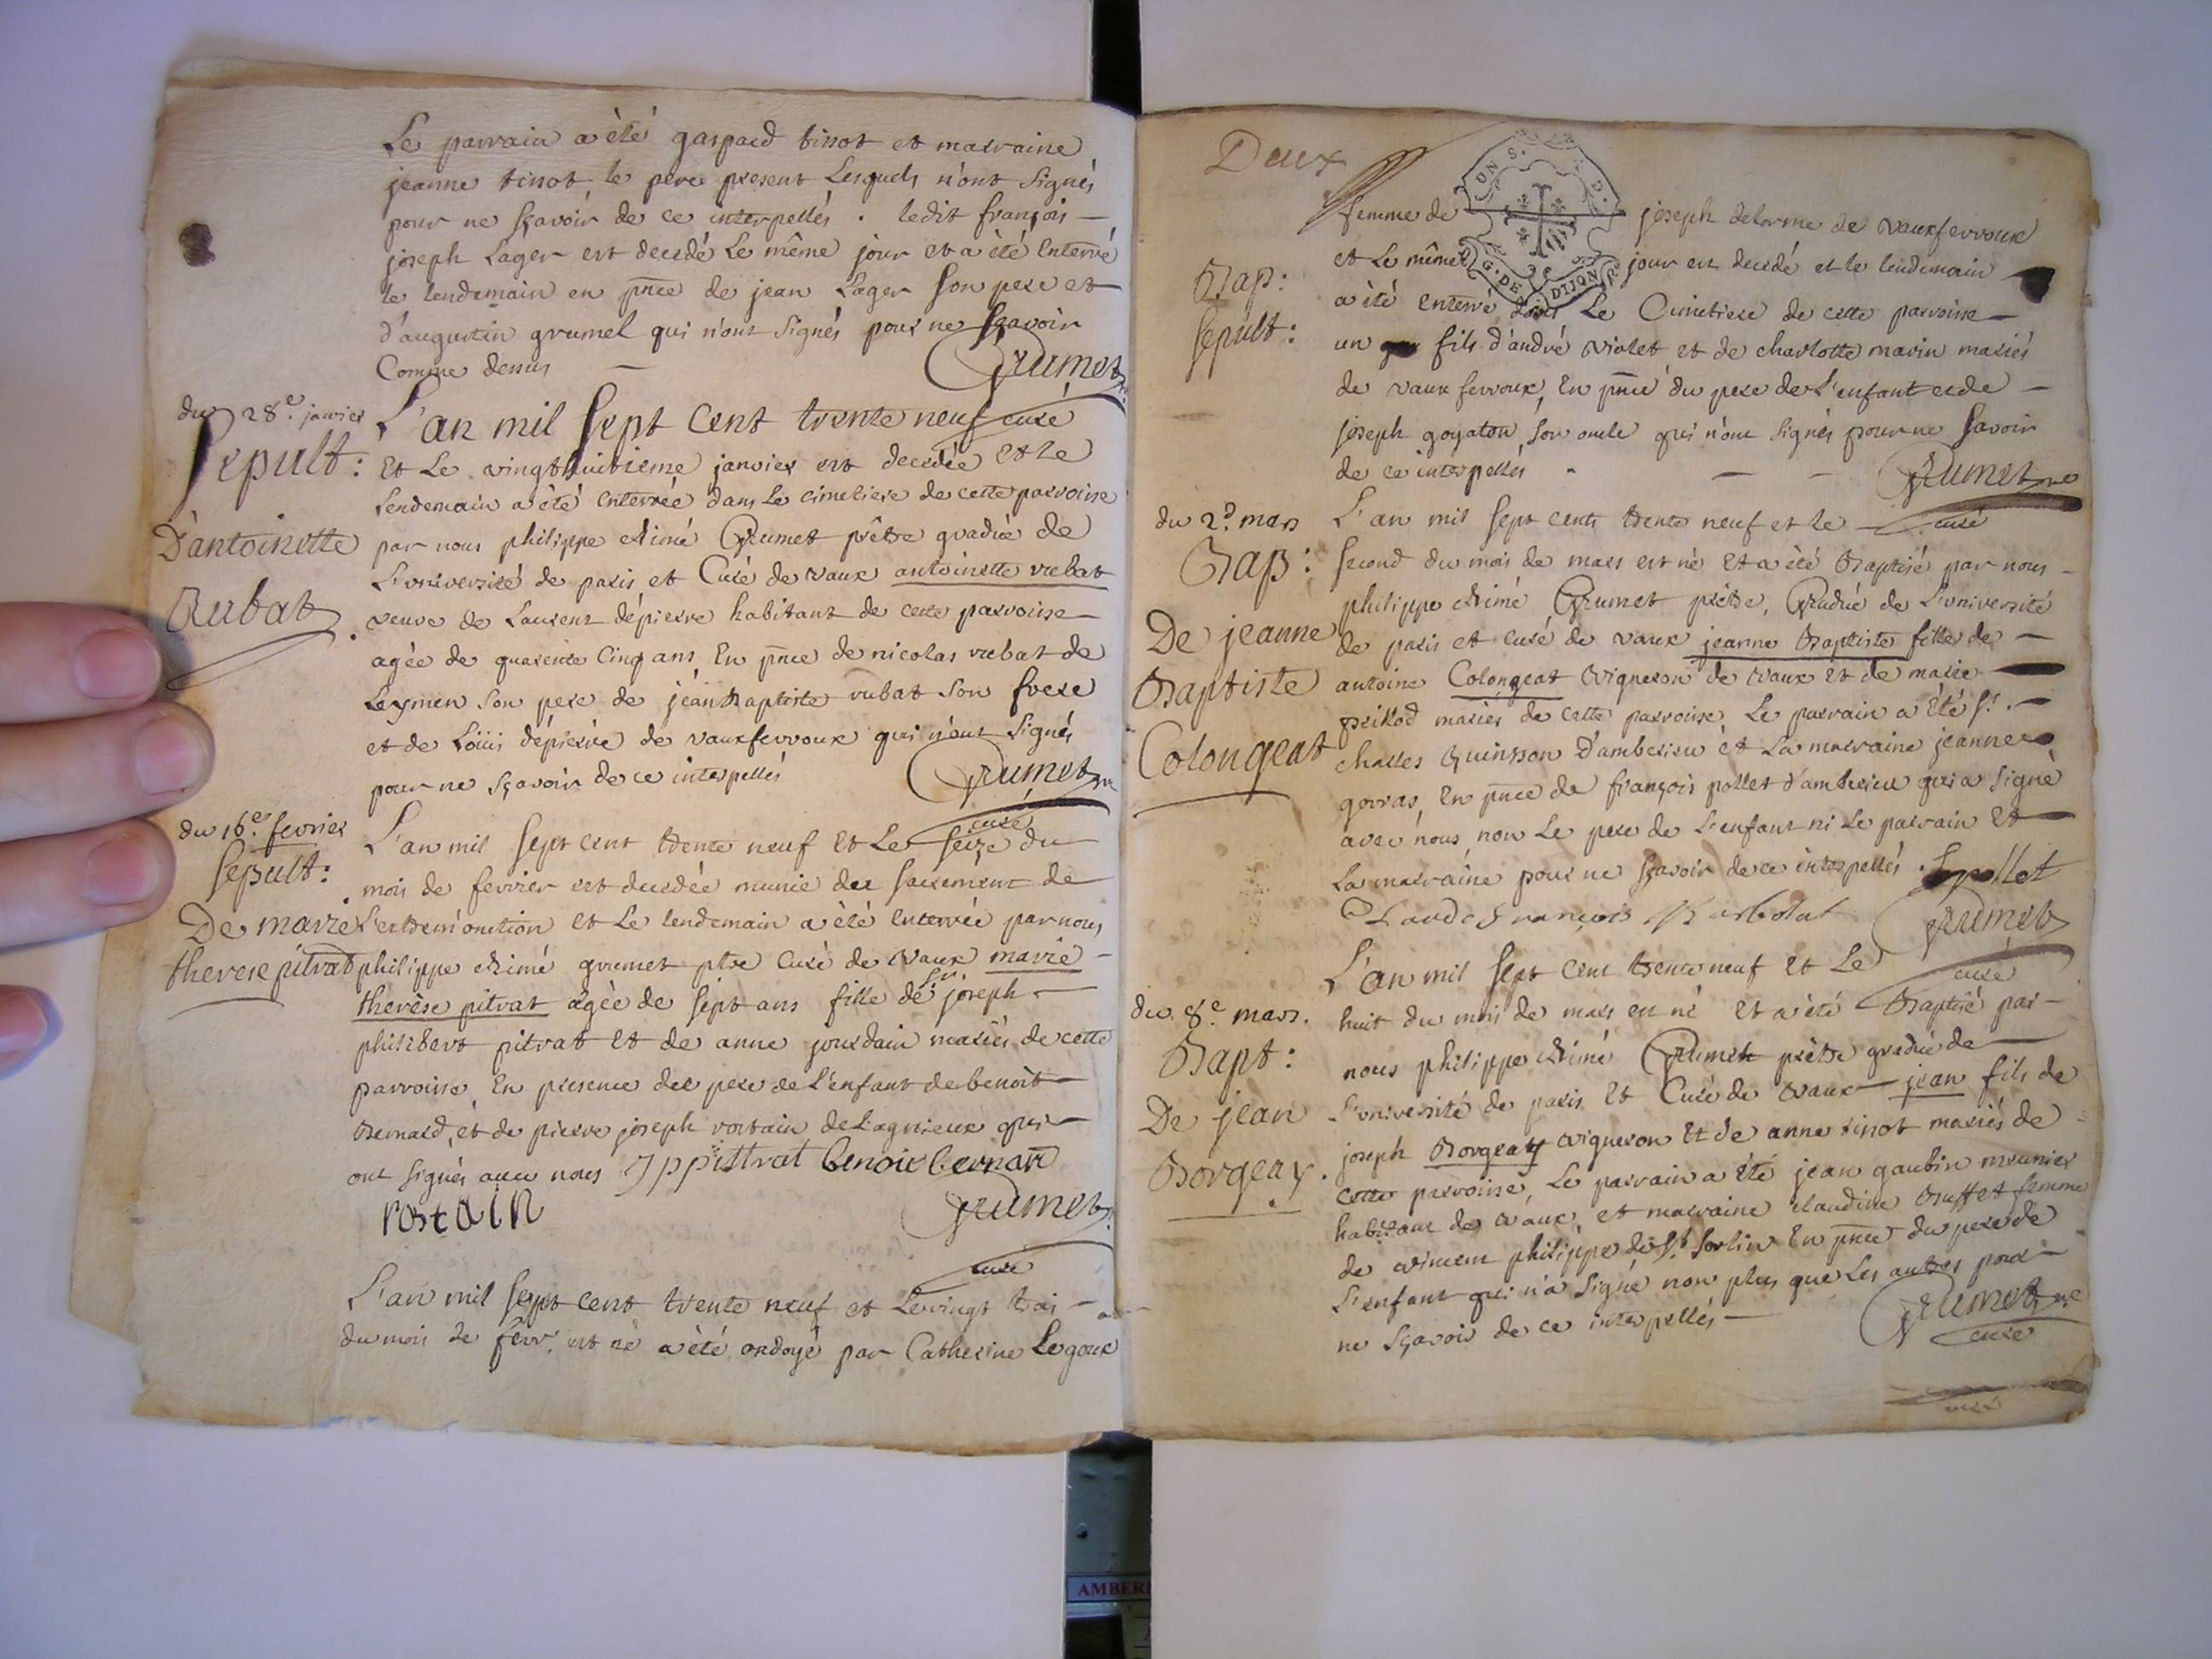 Le parrain a èté gaspard tissot et marraine
jeanne tissot, le pere present Lesquels n'ont Signés
pour ne sçavoir de ce interpellés . ledit françois —
joseph Lager est decedé Le même jour et a èté Enterré
le lendemain en pnce de jean Lager son pere et
d'augustin grumel qui n'ont Signés pour ne sçavoir
Comme dessus — Grumet
curé
du 28e. janvier
Sepult:
D'antoinette
Rubat
L'an mil sept cent trente neuf
Et Le vingthuitieme janvier est decedée Et le
Lendemain a èté enterrée dans Le cimetiere de cette parroisse
par nous philippe Aimé Grumet prêtre gradué de
L'université de paris et Curé de vaux antoinette rubat
veuve de Laurent dépierre habitant de cette parroisse —
agée de quarente Cinq ans En pnce de nicolas rubat de
Leymen son pere de jean Baptiste rubat son frere
et de Loüis dépierre de vauxfevroux qui n'ont Signés
pour ne sçavoir de ce interpellés Grumet
curé
du 16e. fevrier
Sepult:
De marie
therese pitrat
L'an mil sept cent trente neuf Et Le seize du
mois de fevrier est decedée munie des sacrement de
L'extrem'onction et Le lendemain a èté Enterrée par nous
philippe Aimé grumet ptre Curé de vaux marie —
therèse pitrat agée de sept ans fille de Sr. joseph —
philibert pitrat Et de anne jourdain mariés de cette
parroisse, En presence des pere de L'enfant de benoit —
Bernard, et de pierre joseph rostain de Lagnieux qui —
ont signés avec nous J p pittrat benoit bernard
rostain Grumet
curé
L'an mil sept cent trente neuf et Le vingt troi —
du mois de fevr. est né a èté ondoyé par Catherine Legoux
Deux
DN S. D.
G. DE DIJON
Bap:
Sepult:
femme de joseph delorme de vauxfevroux
et Le même jour est decedé et le lendemain
a èté enterré dans Le Cimetiere de cette parroisse —
un fils d'andré violet et de charlotte marin mariés
de vaux fevroux, En pnce du pere de L'enfant et de —
joseph goyaton, son oncle qui n'ont Signés pour ne savoir
de ce interpellés - — — Grumet
curé
du 2d. mars
Bap:
De jeanne
Baptiste
Colongeat
L'an mil sept cents trente neuf et le —
second du mois de mars est né Et a èté Baptisé par nous —
philippe Aimé Grumet prêtre, Gradué de L'université
de paris et curé de vaux jeanne Baptiste fille de —
antoine Colongeat vigneron de vaux Et de marie —
mariés de cette parroisse, Le parrain a èté Sr. —
charles Quinsson D'amberieu et La marraine jeanne
gorras, En pnce de françois pollet d'amberieu qui a Signé
avec nous, non Le pere de L'enfant ni Le parrain Et —
La marraine pour ne sçavoir de ce interpellés . pollet
Claude françois Grumet
curé
du 8e. mars.
Bapt:
De jean
Borgeay.
L'an mil sept Cent trente neuf Et Le
huit du mois de mars est né Et a èté Baptisé par —
nous philippe Aimé Grumet prètre gradué de —
L'université de paris Et Curé de vaux — jean fils de
joseph Borgeay vigneron Et de anne tissot mariés de
cette parroisse, Le parrain a èté jean gaubin meunier
habitant de vaux, et marraine claudine Buffet femme
de vincent philippe de St. sorlin En pnce du pere de
L'enfant qui n'a signé non plus que Les autres pour —
ne sçavoir de ce interpellés — Grumet
curé
AMBER